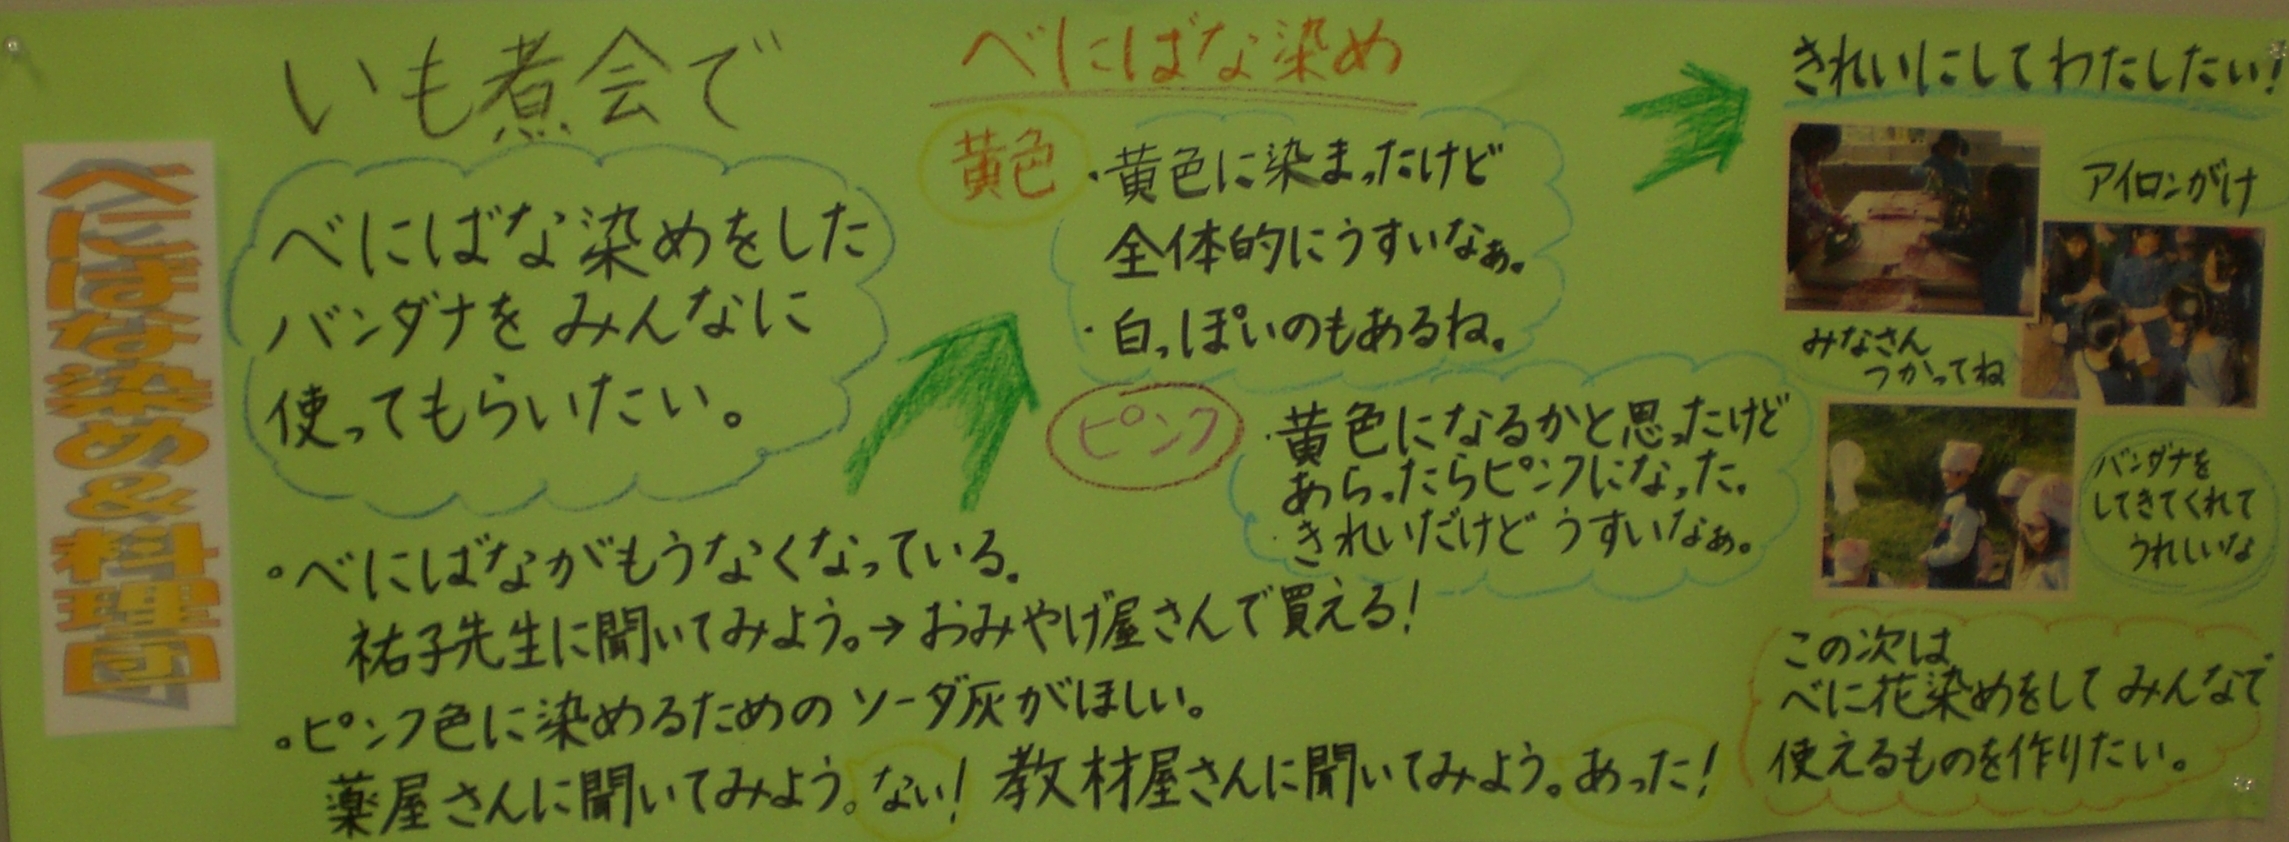 べにばな染め&料理団
いも煮会で
べにばな染めをした
バンダナをみんなに
使ってもらいたい。
。べにばながもうなくなっている。
祐子先生に聞いてみよう。→おみやげ屋さんで買える!
。ピンク色に染めるためのソーダ灰がほしい。
薬屋さんに聞いてみよう。ない! 教材屋さんに聞いてみよう。あった!
べにばな染め
黄色
・黄色に染まったけど
全体的にうすいなぁ。
・白っぽいのもあるね。
ピンク
・黄色になるかと思ったけど
あらったらピンクになった。
・きれいだけどうすいなぁ。
きれいにしてわたしたい!
アイロンがけ
みなさん
つかってね
バンダナを
してきてくれて
うれしいな
この次は
べに花染めをしてみんなで
使えるものを作りたい。